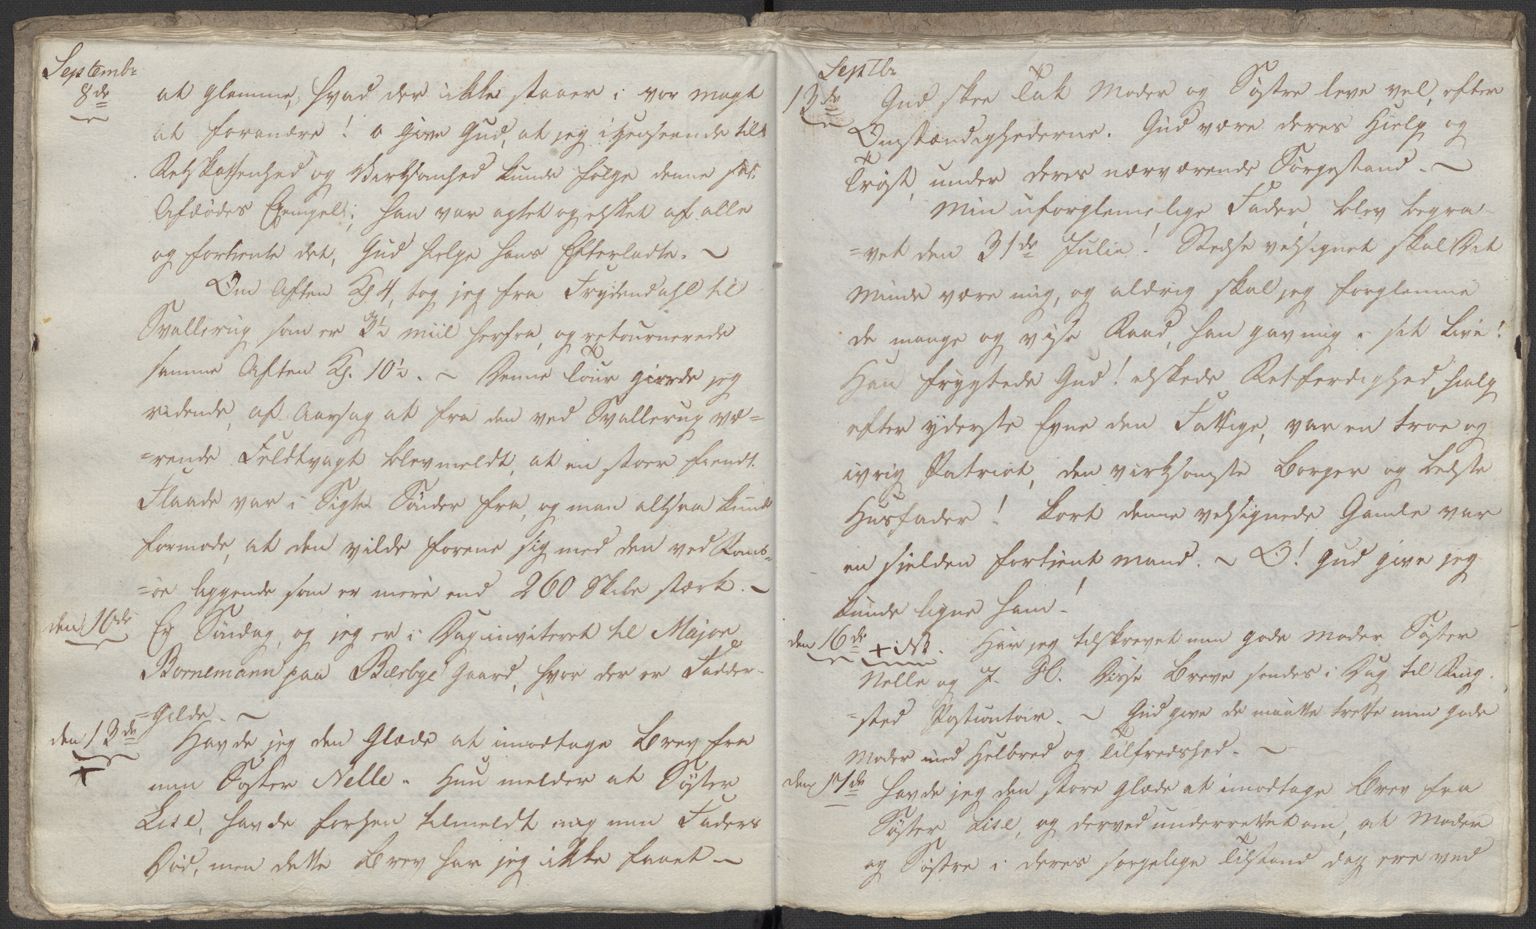 Septembr
8de at glemme, hvad der ikke staaer i vor magt
at forandre! o Give Gud, at jeg i henseende til
Retskaffenhed og Virksomhed kunde følge denne
Afdødes Exempel; han var agtet og elsket af alle
og fortiente det, Gud hielpe hans Efterladte. ~
Om Aften Kl 4, tog jeg fra Frydendahl til
Svallerup som er 3½ miil herfra, og retournerede
samme Aften Kl. 10½. ~ Denne Tour giorde jeg
ridende, af Aarsag at fra den ved Svallerup væ=
=rende Feldtvagt blev meldt, at en stoer fiendtl.
Flaade var i Sigte Sønder fra, og man altsaa kunde
formode, at den vilde forene sig med den ved Roms=
=øe liggende som er mere end 260 Skibe stærk. ~
den 10de Er Søndag, og jeg er i Dag inviteret til Major
Bornemann paa Bierbye Gaard, hvor der er Fadder-
=Gilde. ~
den 13de Havde jeg den Glæde at imodtage Brev fra
+ min Søster Nelle. Hun melder at Søster
Lise, havde forhen tilmeldt mig min Faders
Død, men dette Brev har jeg ikke faaet ~
Septbr
13de Gud skee Tak Moder og Søstre leve vel, efter
Omstændighederne. Gud være deres Hielp og
Trøst, under deres nærværende Sørgestand. ~
Min uforglemelige Fader, blev begra-
=vet den 31de Julii! Stedse velsignet skal Det
Minde være mig, og aldrig skal jeg forglemme
de mange og vise Raad, han gav mig i sit Liv!
Han frygtede Gud! elskede Retferdighed, hialp
efter yderste Evne den Fattige, var en troe og
ivrig Patriot, den virksomste Borger og beste
Husfader! kort denne velsignede Gamle var
en sielden fortient mand. ~ O! Gud give jeg
kunde ligne ham!
den 16de + Har jeg tilskrevet min gode Moder Søster
Nelle og J. H. Disse Breve sendes i Dag til Ring-
=sted Postcontoir. ~ Gud give de maatte træffe min gode
Moder med Helbred og Tilfredshed. ~
den 17de Havde jeg den store Glæde at imodtage Brev fra
Søster Lise, og derved underrettet om, at Moder
og Søstre i deres sørgelige Tilstand dog ere ved